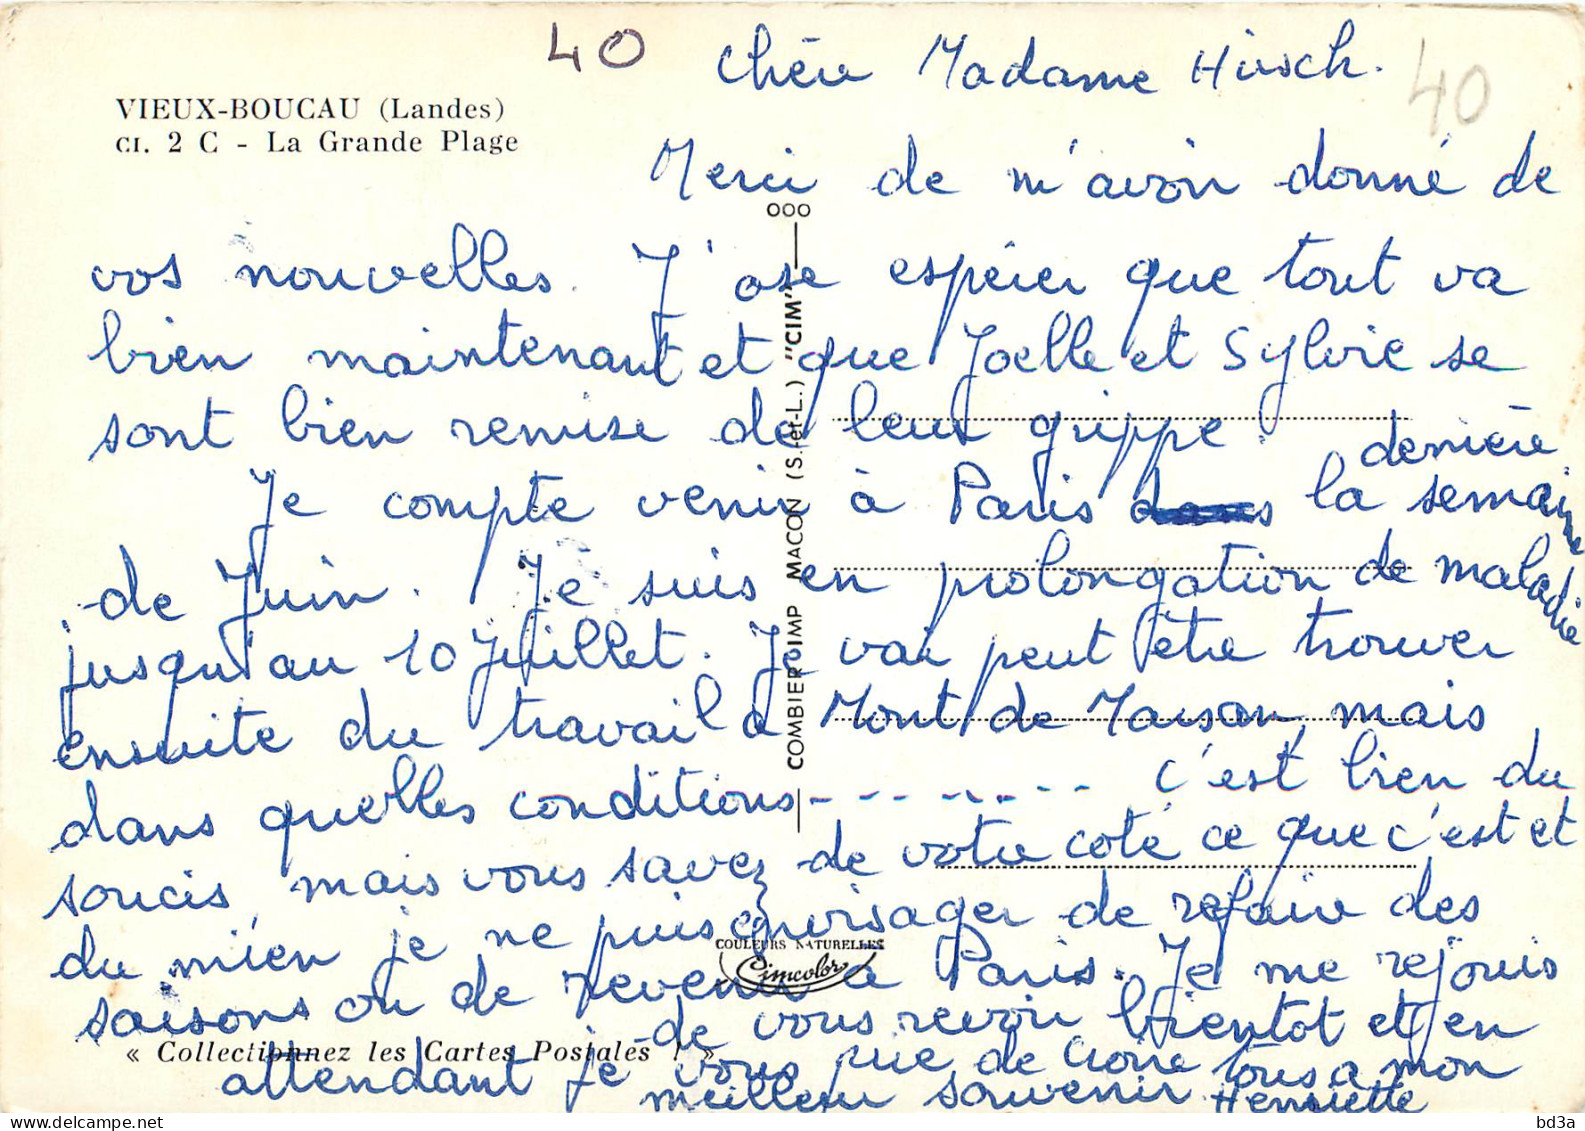 40
Chère Madame Hirsch.
40
VIEUX-BOUCAU (Landes)
CI. 2 C - La Grande Plage
Merci de m'avoir donné de
vos nouvelles. J'ose espérer que tout va
bien maintenant et que Joelle et Sylvie se
sont bien remise de leur grippe.
Je compte venir à Paris dans la dernière semaine
de Juin. Je suis en prolongation de maladie
jusqu'au 10 Juillet. Je vai peut être trouver
ensuite du travail a Mont de Marsan, mais
dans quelles conditions - - - - - - - - c'est bien du
soucis, mais vous savez de votre coté ce que c'est et
du mien je ne puis envisager de refaire des
saisons ou de revenir à Paris. Je me rejouis
de vous revoir bientot et en
attendant je vous prie de croire tous a mon
meilleur souvenir Henriette
COMBIER IMP MACON (S.-et-L.) "CIM"
000
COULEURS NATURELLES
Cimcolor
« Collectionnez les Cartes Postales ! »
bd3a